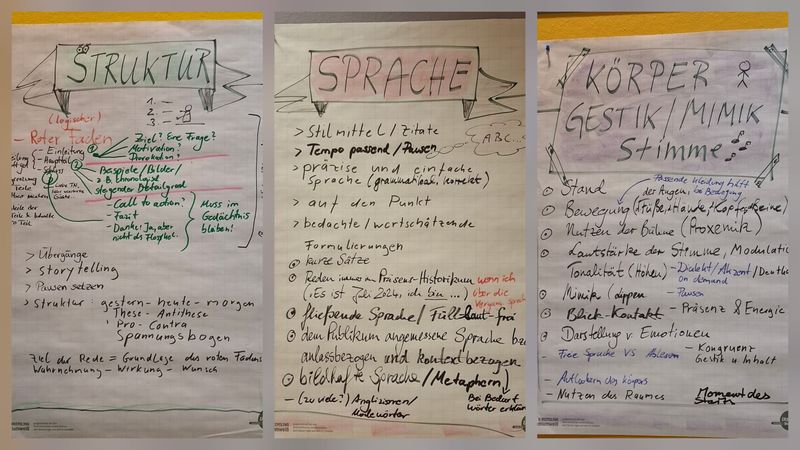 STRUKTUR
1. —
2. —
3. —
(logischer)
– Roter Faden
– Einleitung
– Hauptteil
– Schluss
① Ziel? Eine Frage?
Motivation?
Provokation?
② Beispiele/Bilder/
z.B. chronologisch
steigender Detailgrad
③ – Call to action?
– Fazit
– Danke: Ja, aber
nicht als Floskel.
Muss im
Gedächtnis
bleiben!
> Übergänge
> Storytelling
> Pausen setzen
> Struktur: gestern-heute-morgen
These-Antithese
Pro-Contra
Spannungsbogen
Ziel der Rede = Grundlage des roten Fadens
Wahrnehmung – Wirkung – Wunsch
SPRACHE
ABC...
> Stilmittel/Zitate
> Tempo passend/Pausen
> präzise und einfache
Sprache (grammatikal. korrekt)
> auf den Punkt
> bedachte/wertschätzende
Formulierungen
⊙ kurze Sätze
⊙ Reden immer im Präsens-Historikum wenn ich
(„Es ist Juli 2024, ich bin ...) über die
Vergang. spreche
⊙ fließende Sprache/Füll-laut-frei
⊙ dem Publikum angemessene Sprache bzw
anlassbezogen und kontextbezogen
⊙ bildhafte Sprache/Metaphern
– (zu viele?) Anglizismen/
Modewörter
Bei Bedarf
Wörter erklären
KÖRPER
GESTIK/MIMIK
Stimme
⊙ Stand
Passende Kleidung hilft
der Augen, bei Bewegung
⊙ Bewegung (Füße, Hände, Kopf, Beine)
⊙ Nutzen der Bühne (Proxemik)
⊙ Lautstärke der Stimme, Modulatio
Tonalität (Höhen) – Dialekt/Akzent/Deutlich
on demand
⊙ Mimik (Lippen – Pausen
⊙ Blick-Kontakt – Präsenz & Energie
⊙ Darstellung v. Emotionen
– Freie Sprache VS Ablesen
– Kongruenz
Gestik u. Inhalt
– Auflockern des Körpers
– Nutzen des Raumes
Moment des
Starts